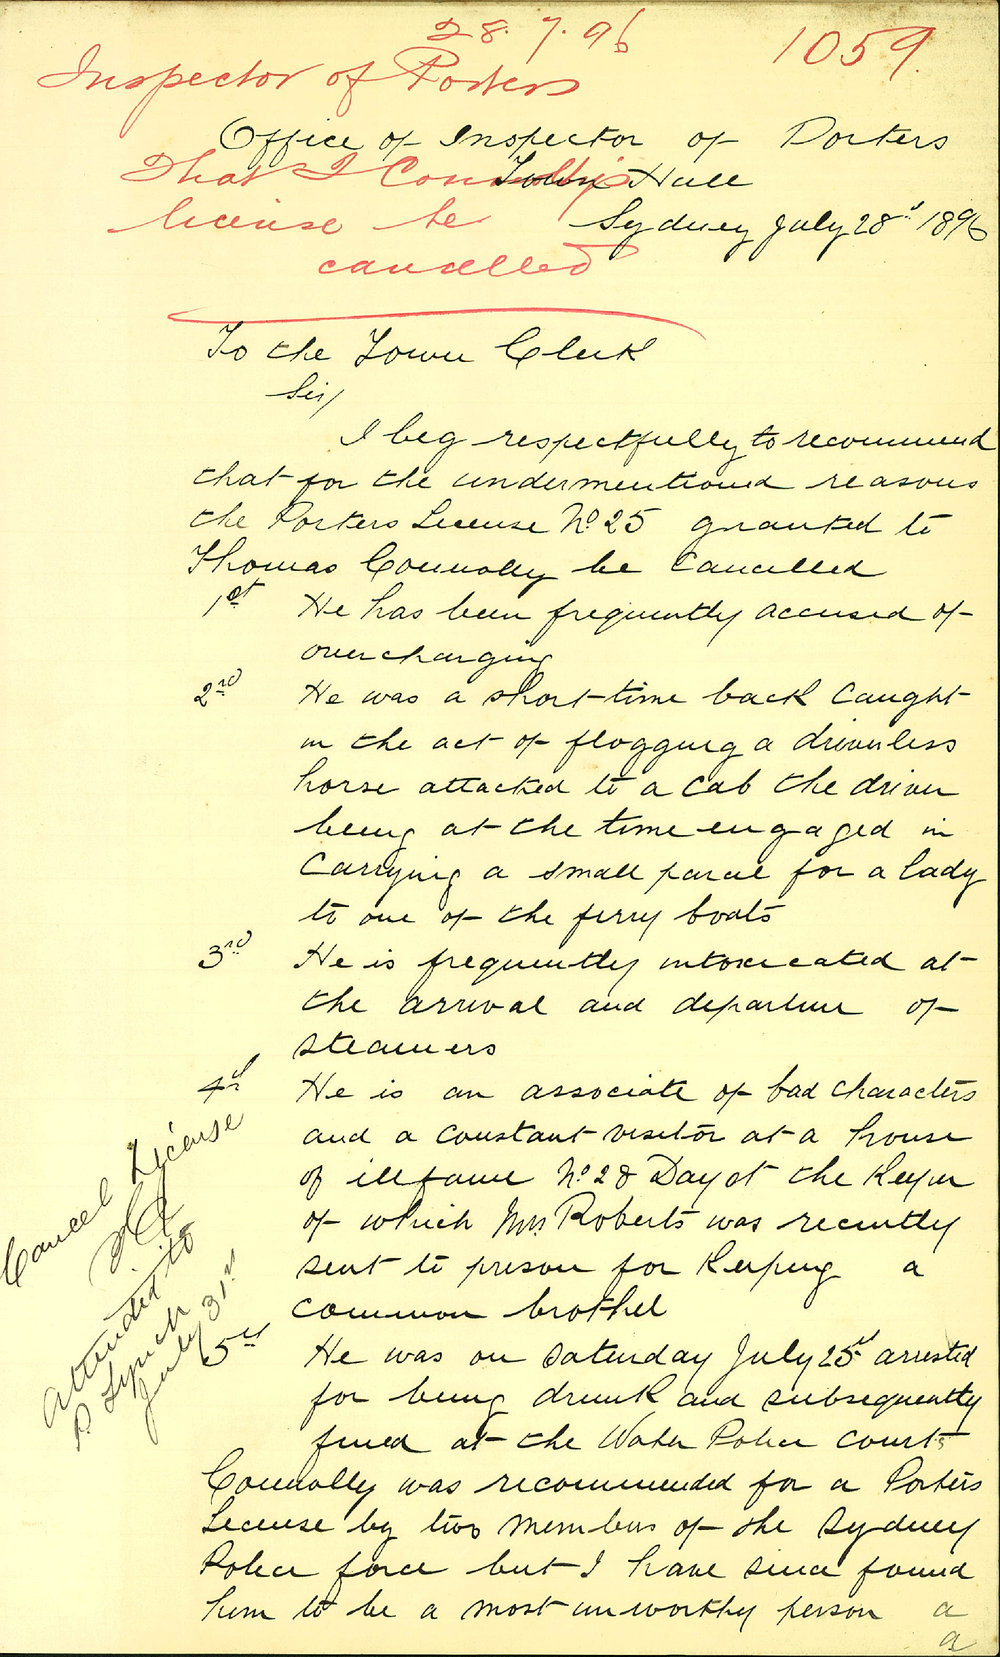 28.7.96
1059
Inspector of Porters
Office of Inspector of Porters
That T Connolly's
Town Hall
license be
Sydney July 28th 1896
cancelled
To the Town Clerk
Sir/
I beg respectfully to recommend
that for the undermentioned reasons
the Porters License No 25 granted to
Thomas Connolly be Cancelled
1st He has been frequently accused of
over charging
2nd He was a short time back Caught
in the act of flogging a driverless
horse attached to a Cab the driver
being at the time engaged in
Carrying a small parcel for a lady
to one of the ferry boats
3rd He is frequently intoxicated at
the arrival and departure of
steamers
4th He is an associate of bad characters
and a constant visitor at a house
of ill fame No 28 Day st the Keeper
of which Mrs Roberts was recently
sent to prison for Keeping a
common brothel
Cancel License
Attended to
P Lynch
July 31st
5th He was on Saturday July 25th arrested
for being drunk and subsequently
fined at the Water Police court
Connolly was recommended for a Porters
License by two members of the Sydney
Police force but I have since found
him to be a most unworthy person a
a